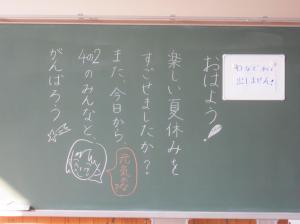 おはよう!
楽しい夏休みを
すごせましたか?
また、今日から、
4の2のみんなと、
がんばろう
元気な
出しません!